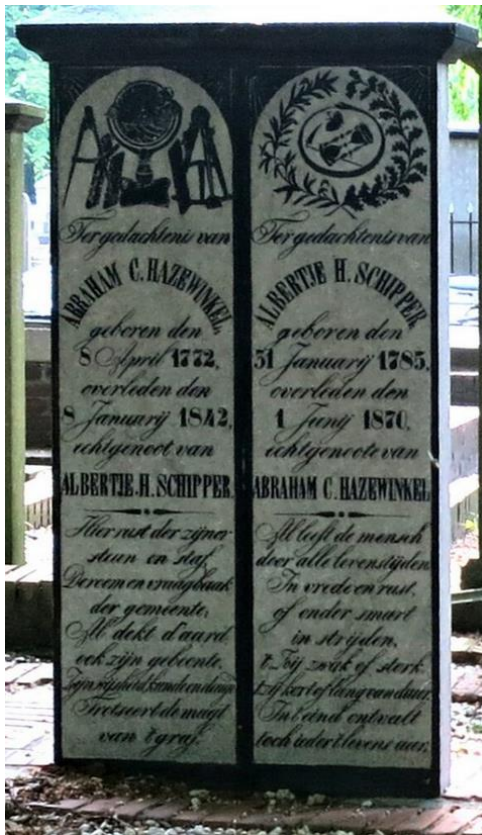 Ter gedachtenis van
ABRAHAM C. HAZEWINKEL,
geboren den
8 April 1772,
overleden den
8 Januarij 1842,
echtgenoot van
ALBERTJE.H.SCHIPPER.
Hier rust der zijnen
steun en staf,
De roem en vraagbaak
der gemeente;
Al dekt d'aard
ook zijn gebeente,
Zijn wijsheid, kunde en deugd
Trotseert de magt
van 't graf.
Ter gedachtenis van
ALBERTJE H. SCHIPPER
geboren den
31 Januarij 1785,
overleden den
1 Junij 1870,
echtgenoote van
ABRAHAM C. HAZEWINKEL
Al leeft de mensch
door alle levenstijden
In vrede en rust,
of onder smart
in strijden,
't Zij zwak of sterk
't zij kort of lang van duur,
In 't eind ontvalt
toch ieder 't levens uur.